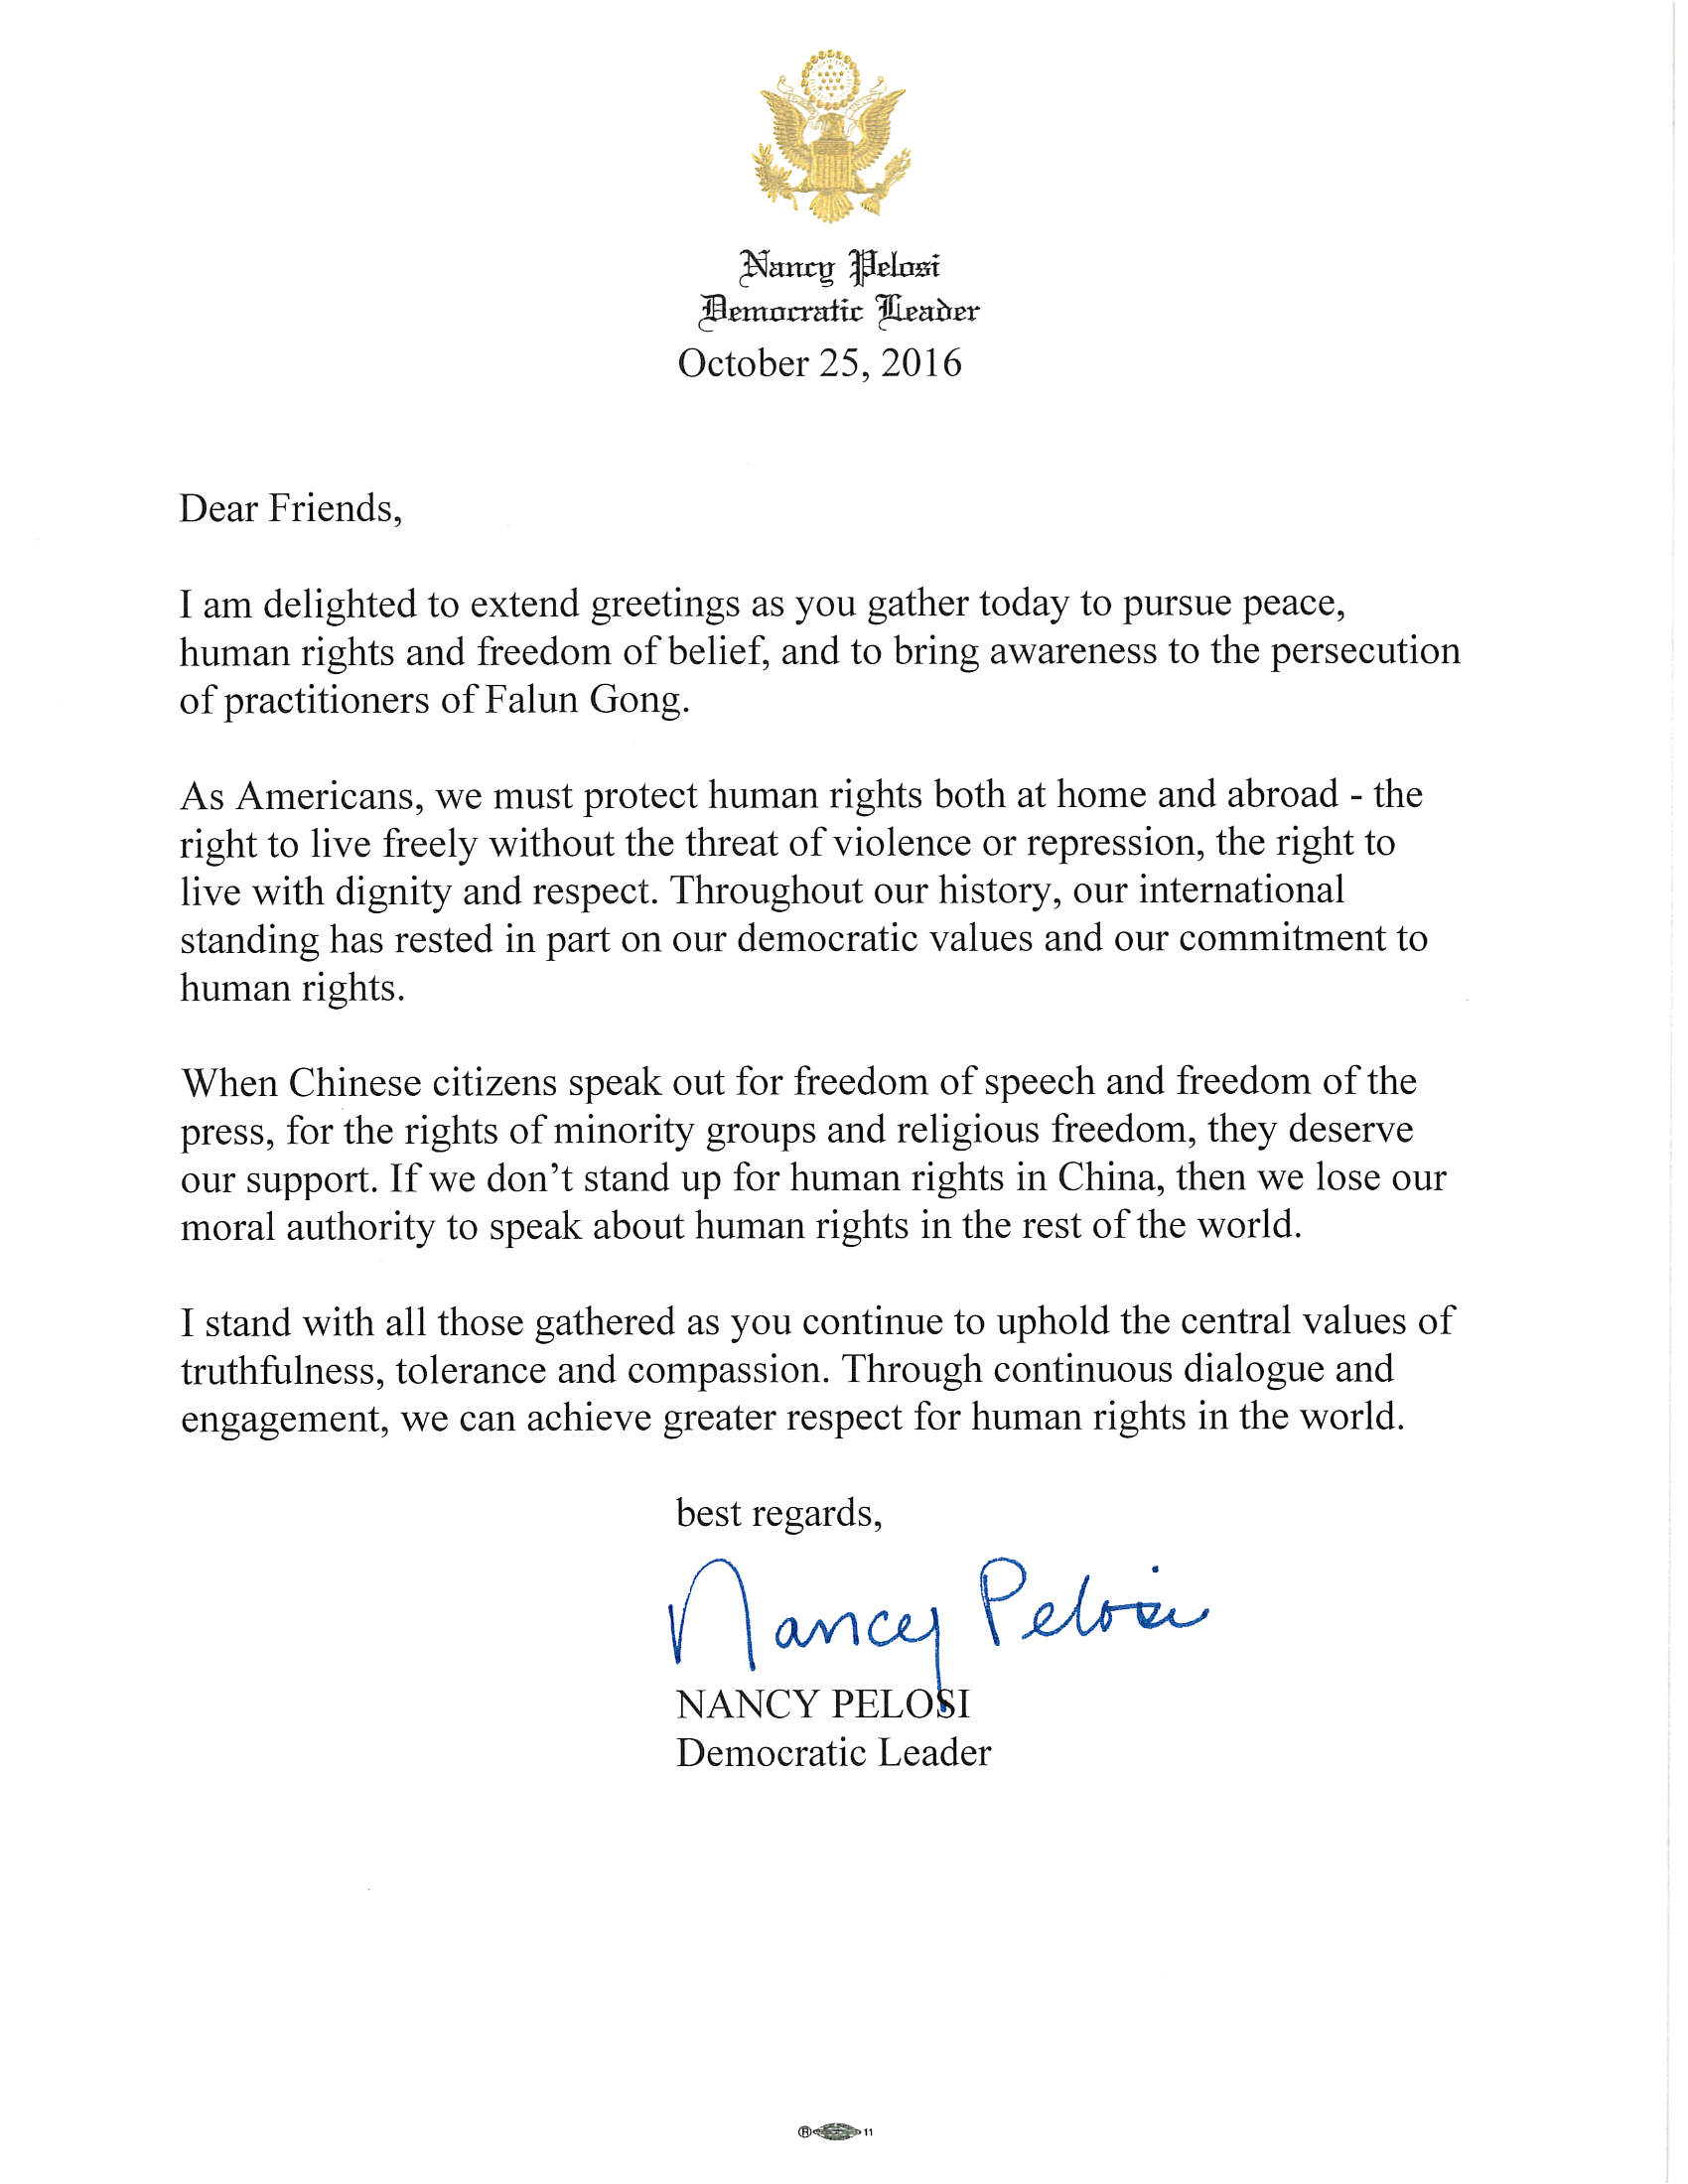 Nancy Pelosi
Democratic Leader
October 25, 2016
Dear Friends,
I am delighted to extend greetings as you gather today to pursue peace,
human rights and freedom of belief, and to bring awareness to the persecution
of practitioners of Falun Gong.
As Americans, we must protect human rights both at home and abroad - the
right to live freely without the threat of violence or repression, the right to
live with dignity and respect. Throughout our history, our international
standing has rested in part on our democratic values and our commitment to
human rights.
When Chinese citizens speak out for freedom of speech and freedom of the
press, for the rights of minority groups and religious freedom, they deserve
our support. If we don't stand up for human rights in China, then we lose our
moral authority to speak about human rights in the rest of the world.
I stand with all those gathered as you continue to uphold the central values of
truthfulness, tolerance and compassion. Through continuous dialogue and
engagement, we can achieve greater respect for human rights in the world.
best regards,
Nancy Pelosi
NANCY PELOSI
Democratic Leader
11